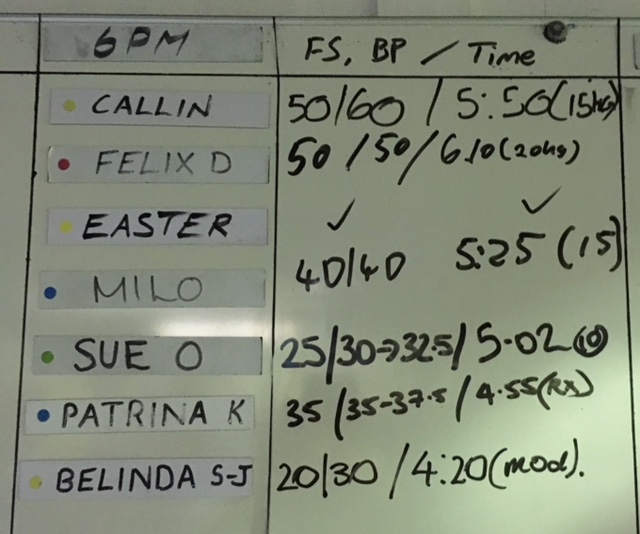 6PM FS, BP / Time
CALLIN 50/60 / 5:50(15kg)
FELIX D 50 / 50/ 6.10(20kg)
EASTER ✓ ✓
MILO 40/40 5:25 (15)
SUE O 25/30→32.5/ 5.02 (10)
PATRINA K 35 /35-37.5 / 4.55(RX)
BELINDA S-J 20/30 / 4:20(mod).